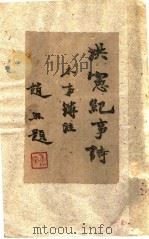 洪憲紀事詩
本事簿注
趙 題